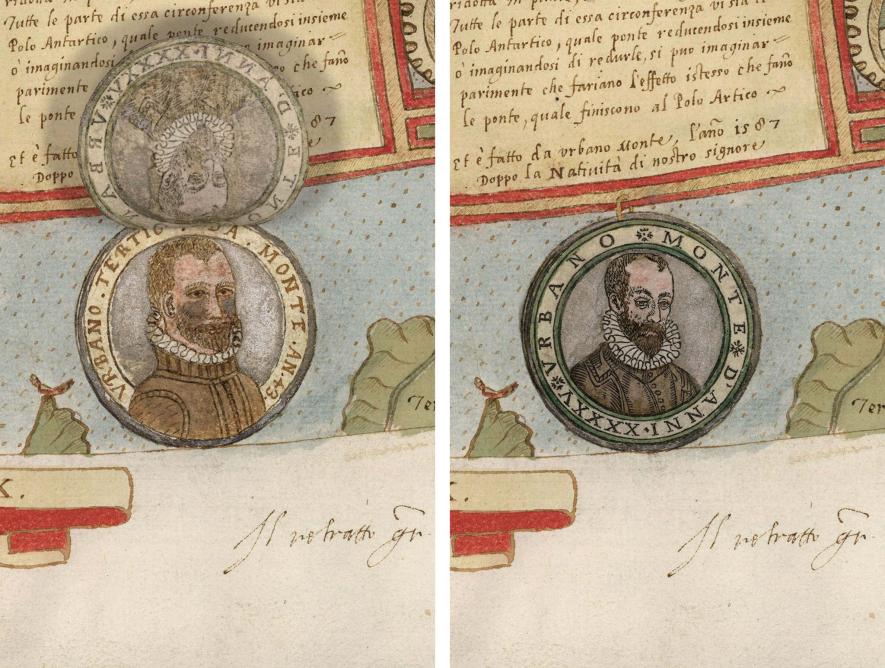 Tutte le parte di essa circonferenza vi sia il
Polo Antartico, quale ponte reducendosi insieme
ò imaginandosi imaginar=
parimente che fano
le ponte ico ~
Et è fatto 87
Doppo
ONTE * D'ANNI·XXXXV * VRBA
VRBANO·TERTIO DA·MONTE·AN 43
Ter
X.
Il retratto
Tutte le parte di essa circonferenza vi sia il
Polo Antartico, quale ponte reducendosi insieme
ò imaginandosi di redurle, si puo imaginar=
parimente che fariano l'effetto istesso che fano
le ponte, quale finiscono al Polo Artico ~
Et è fatto da vrbano Monte, l'año 1587
Doppo la Natiuità di nostro signore
VRBANO * MONTE * D'ANNI·XXXXV *
Ter
X.
Il retratto